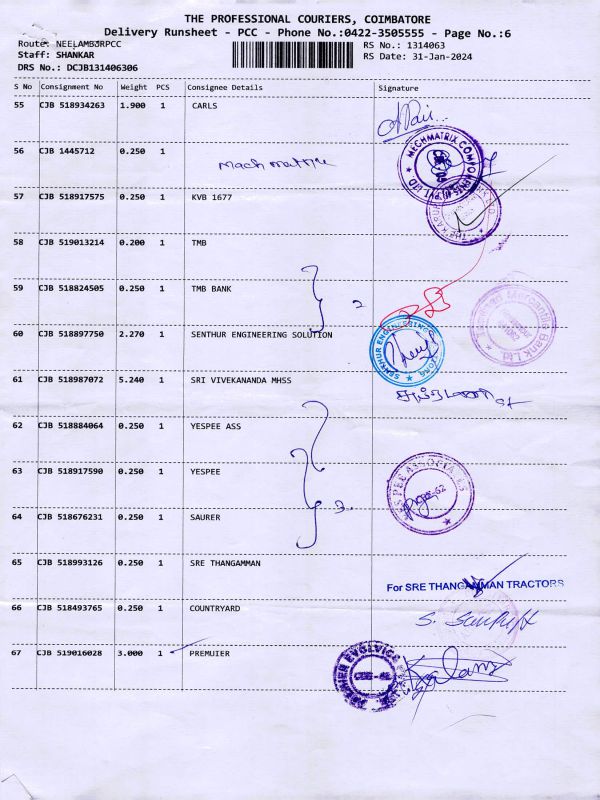 THE PROFESSIONAL COURIERS, COIMBATORE
Delivery Runsheet - PCC - Phone No.:0422-3505555 - Page No.:6
Route: NEELAMBURPCC
Staff: SHANKAR
DRS No.: DCJB131406306
RS No.: 1314063
RS Date: 31-Jan-2024
S No Consignment No Weight PCS Consignee Details Signature
55 CJB 518934263 1.900 1 CARLS
56 CJB 1445712 0.250 1
MECHMATRIX COMPONENTS (I) PVT LTD
57 CJB 518917575 0.250 1 KVB 1677
58 CJB 519013214 0.200 1 TMB
59 CJB 518824505 0.250 1 TMB BANK
2
Mercantile Bank Ltd.
60 CJB 518897750 2.270 1 SENTHUR ENGINEERING SOLUTION
SENTHUR ENGINEERING
61 CJB 518987072 5.240 1 SRI VIVEKANANDA MHSS
62 CJB 518884064 0.250 1 YESPEE ASS
63 CJB 518917590 0.250 1 YESPEE
3
64 CJB 518676231 0.250 1 SAURER
65 CJB 518993126 0.250 1 SRE THANGAMMAN
For SRE THANGAMMAN TRACTORS
66 CJB 518493765 0.250 1 COUNTRYARD
67 CJB 519016028 3.000 1 PREMUIER